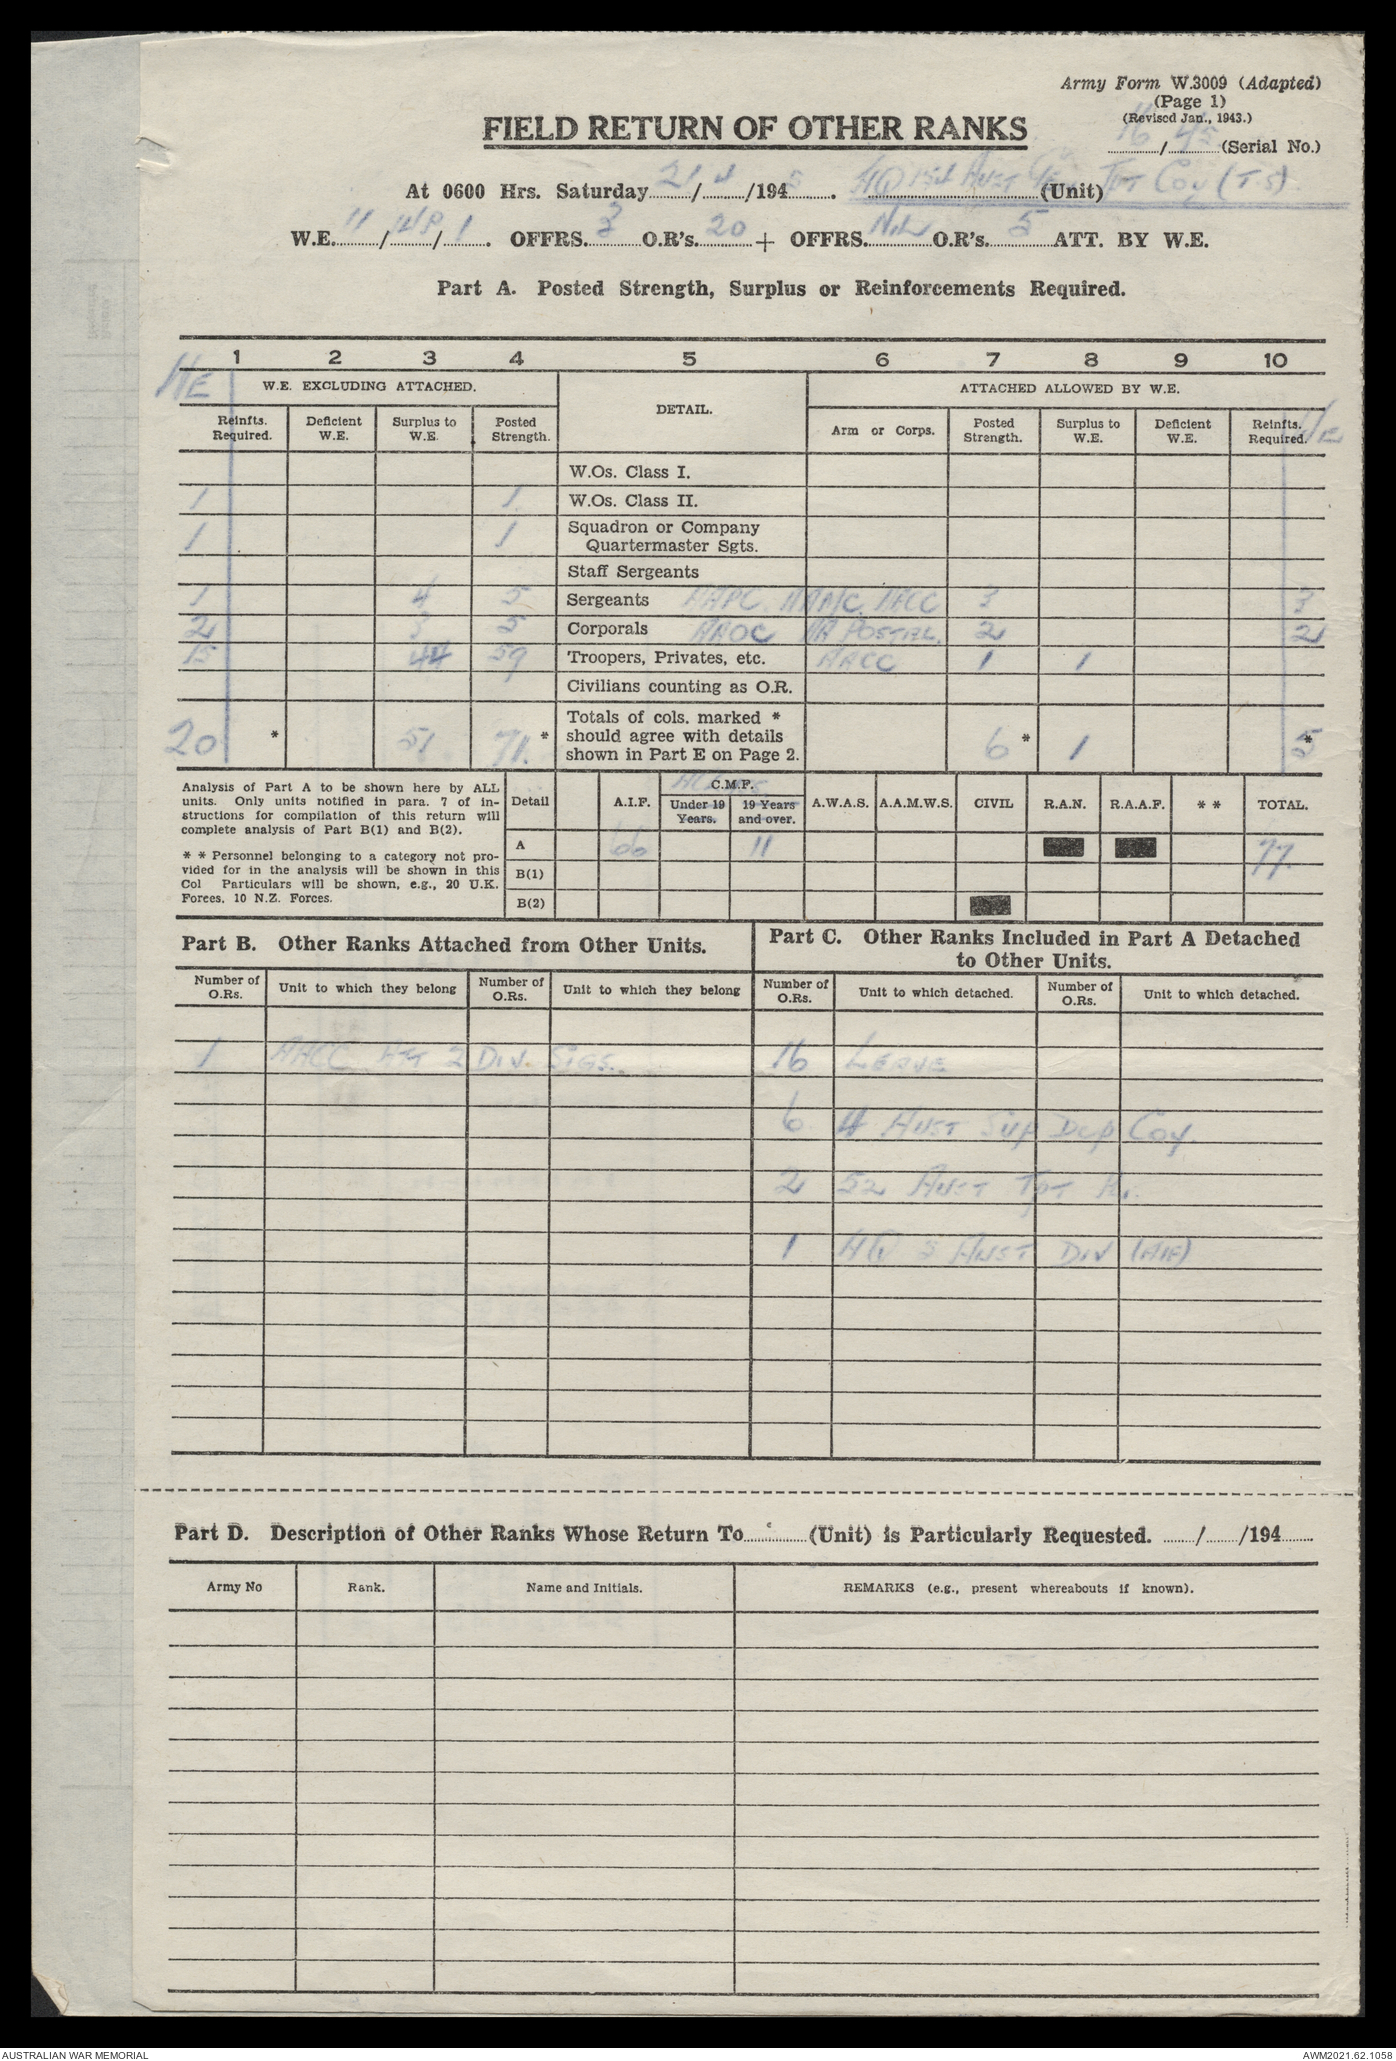 Army Form W.3009 (Adapted)
(Page 1)
(Revised Jan., 1943.)
16 / 45 (Serial No.)
FIELD RETURN OF OTHER RANKS
At 0600 Hrs. Saturday 21/4/1945. HQ 151 Aust Gen Tpt Coy (T.S) (Unit)
W.E. 11/ /1. OFFRS. 3 O.R's. 20 + OFFRS. NIL O.R's. 5 ATT. BY W.E.
Part A. Posted Strength, Surplus or Reinforcements Required.
1 2 3 4 5 6 7 8 9 10
W.E. EXCLUDING ATTACHED. DETAIL. ATTACHED ALLOWED BY W.E.
Reinfts. Required. Deficient W.E. Surplus to W.E. Posted Strength. Arm or Corps. Posted Strength. Surplus to W.E. Deficient W.E. Reinfts. Required.
W.Os. Class I.
1 1 W.Os. Class II.
1 1 Squadron or Company Quartermaster Sgts.
Staff Sergeants
1 4 5 Sergeants AAPC. AAMC. AACC 3 3
2 3 5 Corporals AAOC AA POSTAL. 2 2
15 44 59 Troopers, Privates, etc. AACC 1 1
Civilians counting as O.R.
20 * 51. 71. * Totals of cols. marked * should agree with details shown in Part E on Page 2. 6 * 1 5 *
Analysis of Part A to be shown here by ALL
units. Only units notified in para. 7 of in-
structions for compilation of this return will
complete analysis of Part B(1) and B(2).
* * Personnel belonging to a category not pro-
vided for in the analysis will be shown in this
Col Particulars will be shown, e.g., 20 U.K.
Forces, 10 N.Z. Forces.
Detail A.I.F. C.M.F. Under 19 Years. 19 Years and over. A.W.A.S. A.A.M.W.S. CIVIL R.A.N. R.A.A.F. * * TOTAL.
A 66 11 77
B(1)
B(2)
Part B. Other Ranks Attached from Other Units.
Number of O.Rs. Unit to which they belong Number of O.Rs. Unit to which they belong
1 AACC Att 2 Div. Sigs.
Part C. Other Ranks Included in Part A Detached
to Other Units.
Number of O.Rs. Unit to which detached. Number of O.Rs. Unit to which detached.
16 LEAVE
6 4 Aust Sup Dep Coy.
2 52 Aust Tpt
1 HQ 3 Aust Div (AIF)
Part D. Description of Other Ranks Whose Return To (Unit) is Particularly Requested. / /194
Army No Rank. Name and Initials. REMARKS (e.g., present whereabouts if known).
AUSTRALIAN WAR MEMORIAL
AWM2021.62.1058